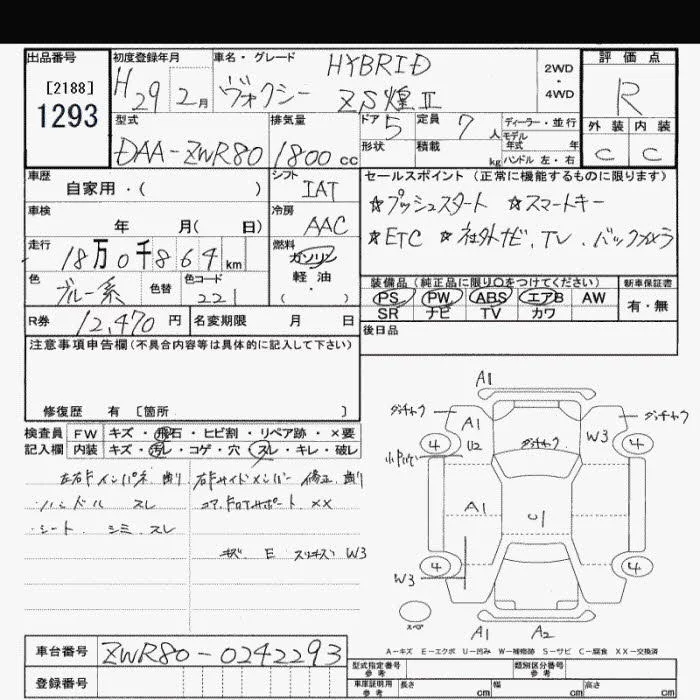 出品番号
[2188]
1293
初度登録年月
H 29 2月
車名・グレード
HYBRID
ヴォクシー ZS煌Ⅱ
2WD
・
4WD
評価点
R
外装 内装
C C
型式
DAA-ZWR80
排気量
1800 cc
ドア 5
形状
定員 7 人
積載 kg
ディーラー・並行
モデル年式 年
ハンドル 左・右
車歴
自家用・( )
シフト
IAT
セールスポイント(正常に機能するものに限ります)
☆プッシュスタート ☆スマートキー
☆ETC ☆社外ナビ、TV、バックカメラ
車検
年 月( 日)
冷房
AAC
走行
18万0千864km
燃料
ガソリン
軽・油
( ・ )
色
ブルー系
色替
色コード
221
装備品(純正品に限り○をつけてください)
PS PW ABS エアB AW
SR ナビ TV カワ
新車保証書
有・無
R券 12,470円
名変期限 月 日
後日品
注意事項申告欄(不具合内容等は具体的に記入して下さい)
修復歴 有 [箇所 ]
検査員記入欄
FW キズ・飛石・ヒビ割・リペア跡・×要
内装 キズ・汚レ・コゲ・穴・スレ・キレ・破レ
左右Fインパネ 削り
右Fサイドメンバー 修正、削り
ハンドル スレ
コアFロアサポート XX
シート シミ スレ
キズ E スリキズ W3
A1
A1
U2
W3
4
4
A1
U
W3
4
4
スペア
A1
A2
A-キズ E-エクボ U-凹み W-補修跡 S-サビ C-腐食 XX-交換済
車台番号 ZWR80-0242293
登録番号
型式指定番号 参考
類別区分番号 参考
車庫証明用 参考
長さ cm
幅 cm
高さ cm